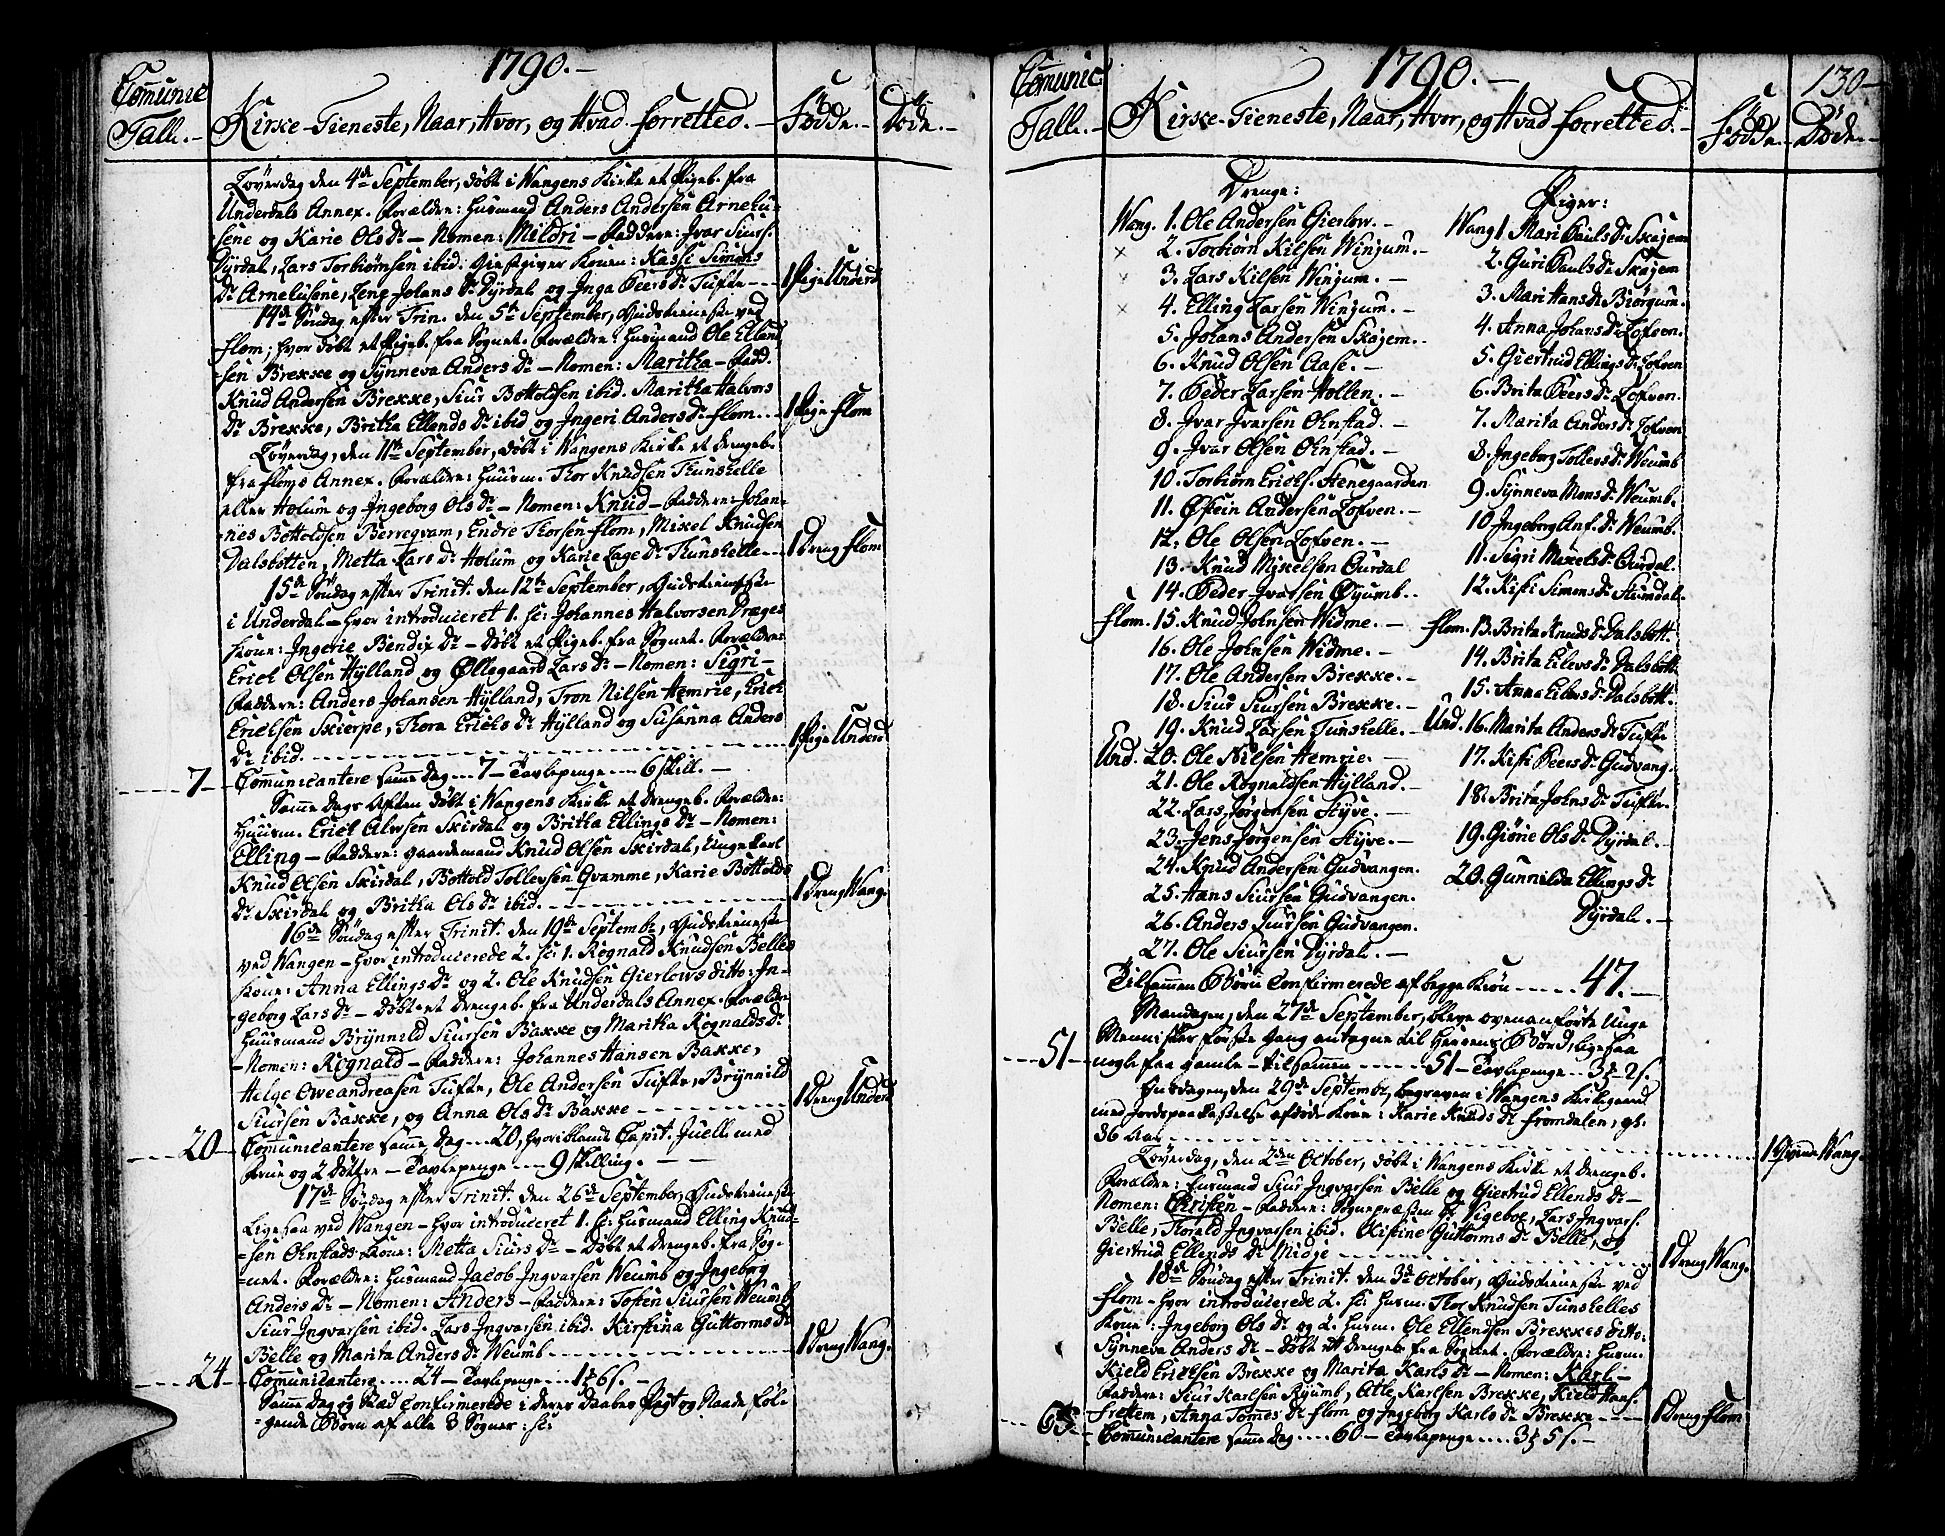 1790.-
Comunic Tall.-
Kirke-Tieneste, Naar, Hvor, og Hvad forretted.-
Födde.-
Döde.-
Löverdag den 4de September, döbt i Wangens Kirke et Pigeb. fra
Underdals Annex. Forældre: Husmand Anders Andersen Arnehu-
-sene og Karie Ols Dr - Nomen: Mildri - Faddere: Ivar Siurs.
Dyrdal, Lars Torbiørnsen ibid. Giestgiver Konen: Kasti Simens
Dr Arnehusene, Lene Johans Dr Dyrdal og Inga Peers Dr Tufte ---
1 Pige Underd
14de Söndag efter Trin. den 5te September, Gudstieneste ved
Flom; hvor döbt et Pigeb. fra Sognet. Forældre: Husmand Ole Ellend
-sen Brekke og Synneva Anders Dr - Nomen: Maritha - Fadd.
Knud Andersen Brekke, Siur Bottolfsen ibid. Maritha Halvors
Dr Brekke, Britha Ellends Dr ibid og Ingeri Anders Dr Flom...
1 Pige Flom
Löverdag, den 11te September, döbt i Wangens Kirke et Drengeb.
fra Floms Annex. Forældre: Huusm. Thor Knudsen Tunshelle
eller Holum og Ingeborg Ols Dr - Nomen: Knud - Faddere: Johan-
-nes Bottolfsen Berreqvam, Endre Thorsen Flom, Mikel Knudsen
Dalsbotten, Metta Lars Dr Holum og Karie Lage Dr Tunshelle ---
1 Dreng Flom
15de Söndag efter Trinit. den 12te September, Gudstieneste
i Underdal - hvor introduceret 1. sc: Johannes Halvorsen Præges
Kone: Ingerie Bendix Dr - Döbt et Pigeb. fra Sognet. Forældre:
Erich Olsen Hylland og Øllegaard Lars Dr - Nomen: Sigri -
Faddere: Anders Johansen Hylland, Tron Nilsen Hemrie, Erich
Erichsen Skierpe, Thora Erichs Dr Hylland og Susanna Anders
Dr ibid.
1 Pige Underd
7 - Comunicantere samme dag --- 7 - Tavlepenge --- 6 skill. -
Samme Dags Aften döbt i Wangens Kirke et Drengeb. Forældre:
Huusm. Erich Olsen Skirdal og Britha Ellings Dr - Nomen:
Elling - Faddere: gaardemand Knud Olsen Skirdal, Ungekarl
Knud Olsen Skirdal, Bottold Tollevsen Gvamme, Karie Bottolds
Dr Skirdal og Britha Ols Dr ibid.
1 Dreng Wang.
16de Söndag efter Trinit. den 19de Septembr, Gudstieneste
ved Wangen - hvor introducerede 2. sc: 1. Rognald Knudsen Belles
Kone: Anna Ellings Dr og 2. Ole Knudsen Gierlows ditto: In-
-geborg Lars Dr - Döbt et Drengeb. fra Underdals Annex. Forældre
Huusmand Brynnild Siursen Bakke og Maritha Rognalds Dr
- Nomen: Rognald - Faddere: Johannes Hansen Bakke,
Helge Oweandreasen Tufte, Ole Andersen Tufte, Brynnild
Siursen Bakke, og Anna Ols Dr Bakke
1 Dreng Underd
20 - Comunicantere samme dag --- 20, hvoriblandt Capit. Juell med
Frue og 2 Døttre - Tavlepenge --- 9 skilling.
17de Söndag efter Trinit. den 26de September, Gudstieneste
ligesaa ved Wangen - hvor introduceret 1. sc: Husmand Elling Knud-
-sen Ohnstads Kone: Metta Siurs Dr - Döbt et Drengeb. fra Sog-
-net. Forældre: Husmand Jacob Ingvarsen Weumb og Ingeborg
Anders Dr - Nomen: Anders - Faddere: Tosten Siursen Weumb
Siur Ingvarsen ibid. Lars Ingvarsen ibid. Kirstina Guttorms Dr
Belle og Marita Anders Dr Weumb
1 Dreng Wang.
24 - Comunicantere .... 24 - Tavlepenge --- 1 6 s. -
Samme Dag og Stæd confirmerede i deres Daabes Pagt og Naade föl-
-gende Børn af alle 3 Sogner: sc:
1790.-
130-
Comunic Tall.-
Kirke-Tieneste, Naar, Hvor, og Hvad forretted.-
Födde.-
Döde.-
Drenge:
Wang. 1. Ole Andersen Gierlow. -
× 2. Torbiörn Nilsen Winjum. -
3. Lars Nilsen Winjum. -
× 4. Elling Larsen Winjum. -
5. Johans Andersen Skajem. -
6. Knud Olsen Aase. -
7. Peder Larsen Hollen. -
8. Ivar Ivarsen Ohnstad. -
9. Ivar Olsen Ohnstad. -
10. Torbiörn Erichs. Stenegaarden
11. Østein Andersen Lofven. -
12. Ole Olsen Lofven. -
13. Knud Mikelsen Ourdal
14. Peder Ivarsen Øyumb. -
Flom. 15. Knud Johnsen Widme. -
16. Ole Johnsen Widme. -
17. Ole Andersen Brekke. -
18. Siur Siursen Brekke. -
19. Knud Larsen Tunshelle. -
Und. 20. Ole Nilsen Hemrie. -
21. Ole Rognaldsen Hylland. -
22. Lars Jörgensen Styve. -
23. Jens Jörgensen Styve. -
24. Knud Andersen Gudvangen.
25. Hans Siursen Gudvangen.
26. Anders Siursen Gudvangen.
27. Ole Siursen Dyrdal. -
Piger:
Wang 1. Mari Pauls Dr Skajem
2. Guri Pauls Dr Skajem
3. Mari Hans Dr Biörgum.
4. Anna Johans Dr Lofven.
5. Giertrud Ellings Dr Lofven
6. Brita Peers Dr Lofven.
7. Marita Anders Dr Lofven
8. Ingeborg Tollevs Dr Weumb
9. Synneva Mons Dr Weumb.
10 Ingeborg Anf. Dr Weumb.
11. Sigri Mikels Dr Ourdal.
12. Kisti Simens Dr Stumdal.
Flom. 13. Brita Knuds Dr Dalsbott.
14. Brita Eilevs Dr Dalsbott.
15. Anna Eilevs Dr Dalsbott.
Und. 16. Marita Anders Dr Tufte
17. Kisti Peers Dr Gudvang.
18. Brita Johns Dr Tufte.
19. Giöne Ols Dr Dyrdal. -
20. Gunnilda Ellings Dr
Dyrdal. -
Tilsammen Børn confirmerede af begge Kiøn ----- 47. -
Mandagen, den 27de September, bleve ovenanførte Unge
Mennisker første Gang antagne til Herrens Bord, ligesaa
51 - nogle fra gamle - tilsammen ----- 51 - Tavlepenge -- 3 2 s.
Onsdagen, den 29de Septembr, begraven i Wangens Kirkegaard
med Jordspaakastelse afdøde Kone: Karie Knuds Dr Fromdalen, gl.
36 Aar
1 Qvinde Wang.
Löverdag, den 2den October, döbt i Wangens Kirke et Drengeb.
Forældre: Husmand Siur Ingvarsen Belle og Giertrud Ellends Dr -
Nomen: Christen - Faddere: Sognepræsten Dr Vigeboe, Lars Ingvars.
Belle, Thorald Ingvarsen ibid. Kistine Guttorms Dr Belle, og
Giertrud Ellends Dr Midje
1 Dreng Wang.
18de Söndag efter Trinit. den 3de October, Gudstieneste ved
Flom - hvor introducerede 2. sc: Husm. Thor Knudsen Tunshelles
Kone: Ingeborg Ols Dr og 2. Husm. Ole Ellendsen Brekkes ditto:
Synneva Anders Dr - Döbt et Drengeb. fra Sognet. Forældre: Husm.
Kield Erichsen Brekke og Marita Karls Dr - Nomen: Karl -
Faddere: Siur Karlsen Ryumb, Atle Karlsen Brekke, Kield Haaf.
Frettem, Anna Tommes Dr Flom og Ingeborg Karls Dr Brekke ---
1 Dreng Flom
Comunicantere samme dag .... 60 - Tavlepenge .... 3 5 s. -